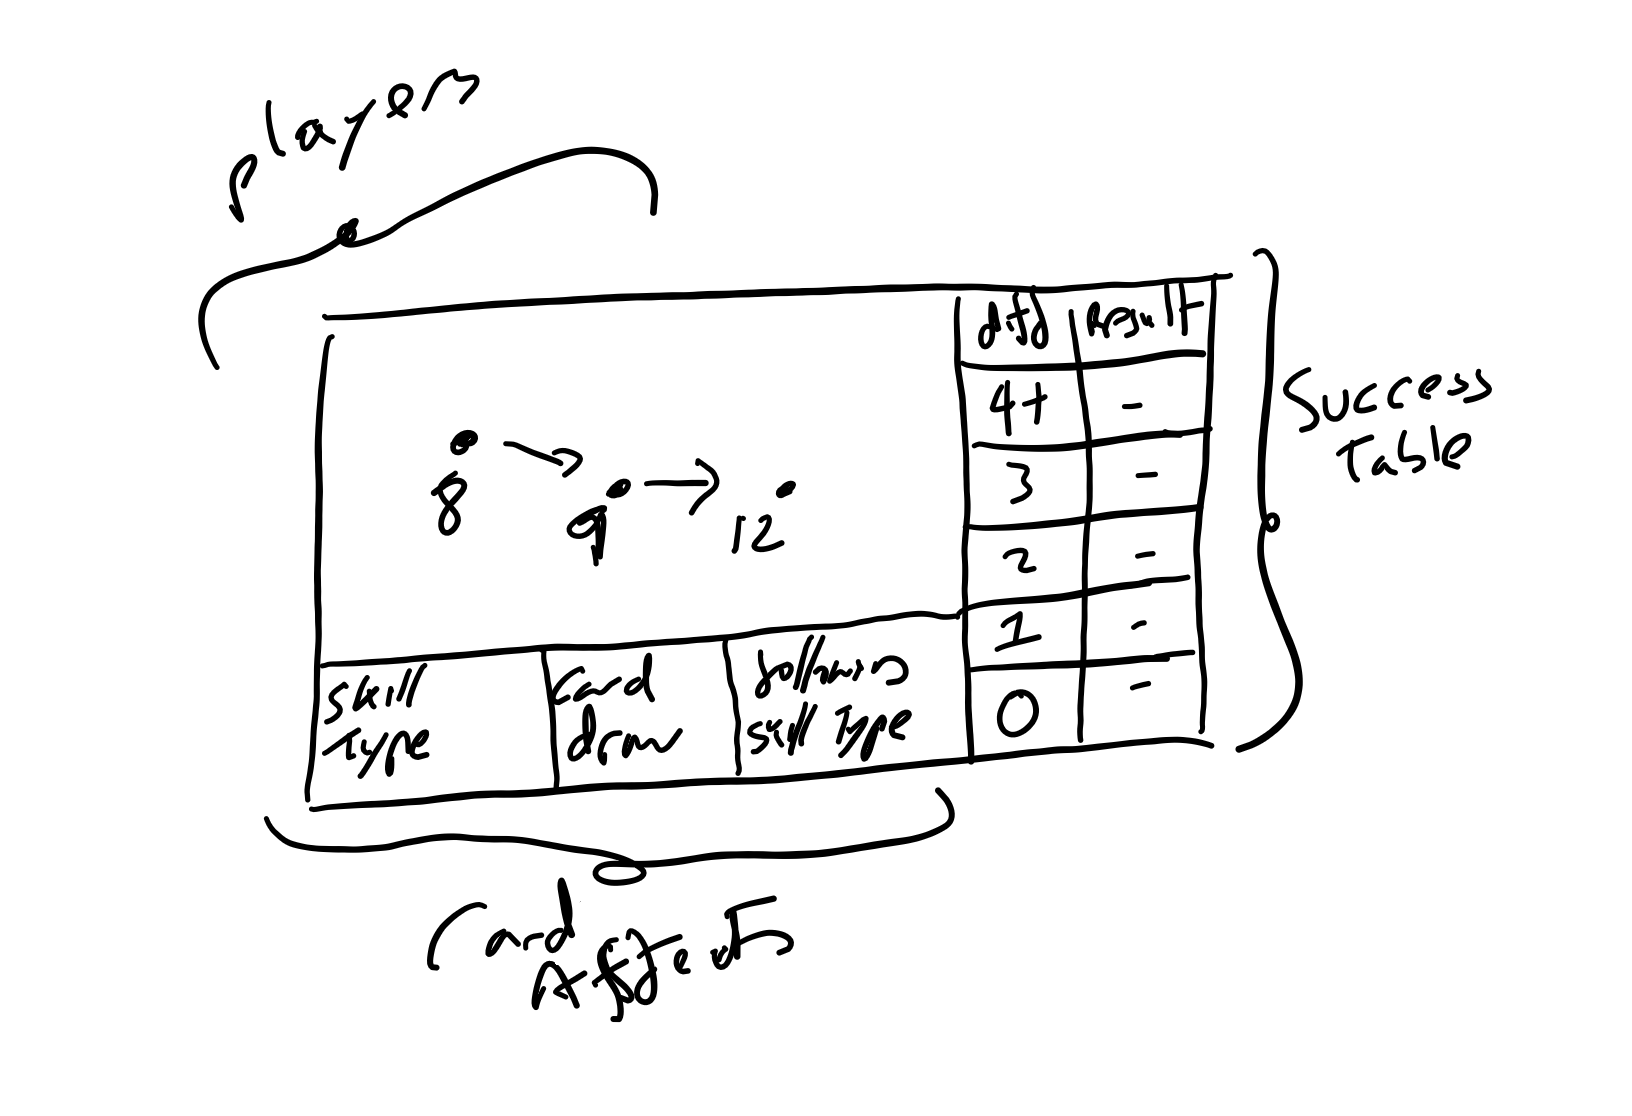 players
diff Result
4+ -
3 -
2 -
1 -
0 -
Success
Table
8 9 12
skill
Type
Card
draw
following
skill Type
Card
Affects